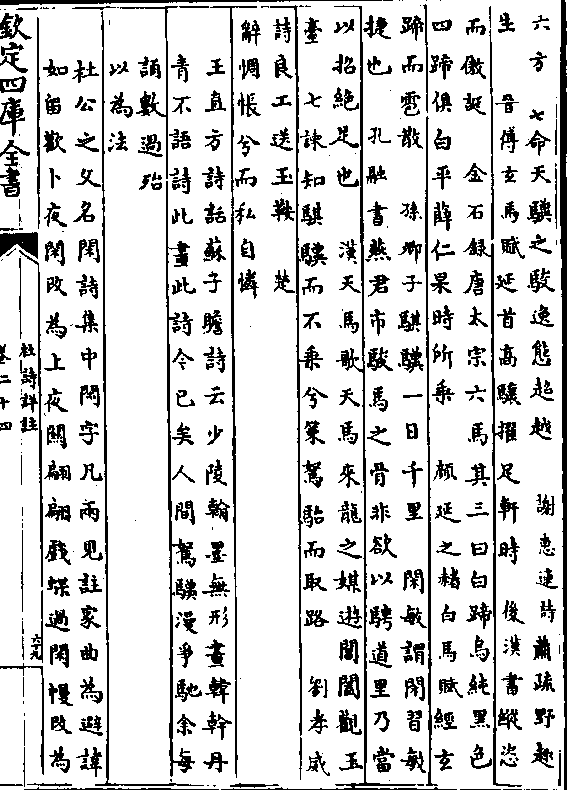 六方 七命天驥之駿逸態超越 謝惠連詩蕭疏野趣
生 晉傅玄馬賦延首高驤擢足軒時 後漢書縱恣
而傲誕 金石錄唐太宗六馬其三曰白蹄烏純黑色
四蹄俱白平薛仁杲時所乘 顏延之赭白馬賦經玄
蹄而雹散 孫卿子騏驥一日千里 閑敏謂閑習敏
捷也 孔融書燕君市駿馬之骨非欲以騁道里乃當
以招絕足也 漢天馬歌天馬來龍之媒遊閶闔觀玉
臺 七諫知騏驥而不乘兮策駑駘而取路 劉孝威
詩良工送玉鞍 楚
辭惆悵兮而私自憐
王直方詩話蘇子瞻詩云少陵翰墨無形畫韓幹丹
青不語詩此畫此詩今已矣人間駑驥漫爭馳余每
誦數過殆
以為法
杜公之父名閑詩集中閑字凡兩見註家曲為避諱
如留歡卜夜閑改為上夜關翩翩戲蝶過閑幔改為
欽定四庫全書
杜詩詳註
卷二十四
六九